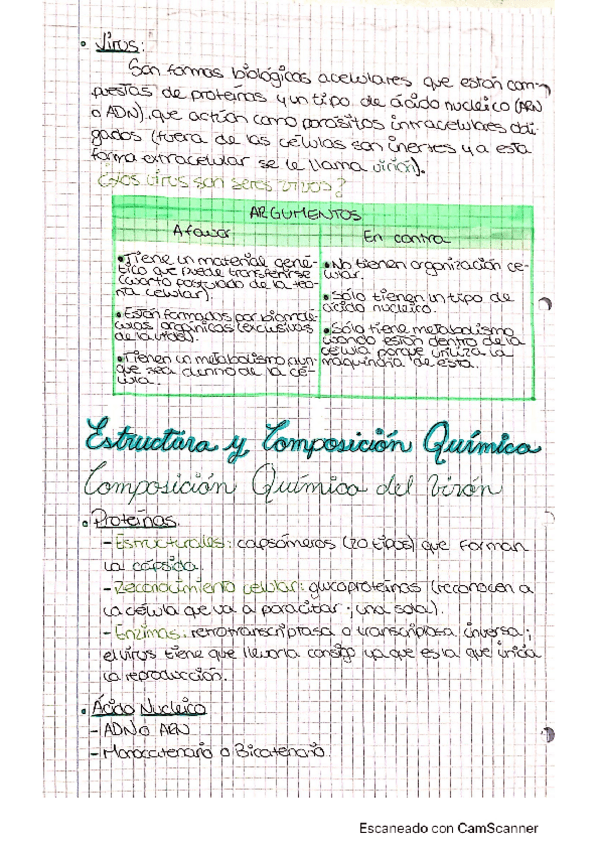 • Virus:
Son formas biológicas acelulares que están com-
puestas de proteínas y un tipo de ácido nucleico (ARN
o ADN), que actúan como parásitos intracelulares obli-
gados (fuera de las células son inertes y a esta
forma extracelular se le llama virión).
¿Los virus son seres vivos?
ARGUMENTOS
A favor
En contra
• Tiene un material gené-
tico que puede transferirse
(cuarto postulado de la teo-
ría celular).
• Están formados por biomolé-
culas orgánicas (exclusivas
de la vida).
• Tienen un metabolismo aun-
que sea dentro de la cé-
lula.
• No tienen organización ce-
lular.
• Sólo tienen un tipo de
ácido nucleico.
• Sólo tiene metabolismo
cuando están dentro de la
célula porque utiliza la
maquinaria de esta.
Estructura y Composición Química
Composición Química del Virión
• Proteínas
- Estructurales: capsómeros (20 tipos) que forman
la cápsida.
- Reconocimiento celular: glucoproteínas (reconocen a
la célula que va a parasitar; una sola).
- Enzimas: retrotranscriptasa o transcriptasa inversa;
el virus tiene que llevarla consigo ya que es la que inicia
la reproducción.
• Ácido Nucleico
- ADN o ARN
- Monocatenario o Bicatenario.
Escaneado con CamScanner